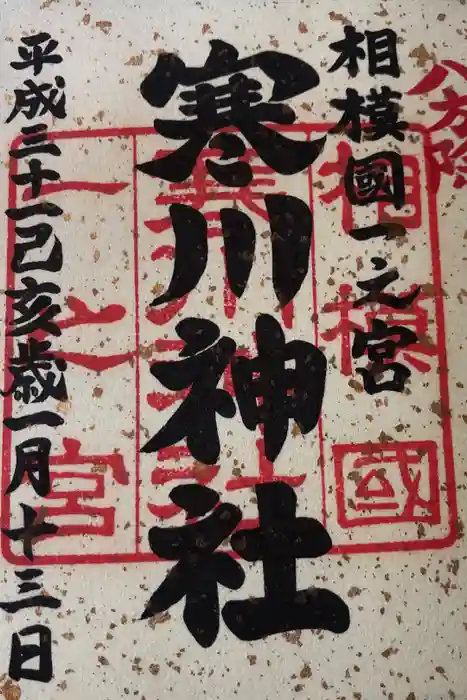 八方除
相模國一之宮
寒川神社
平成三十一己亥歳一月十三日
相模國
寒川神社
一之宮